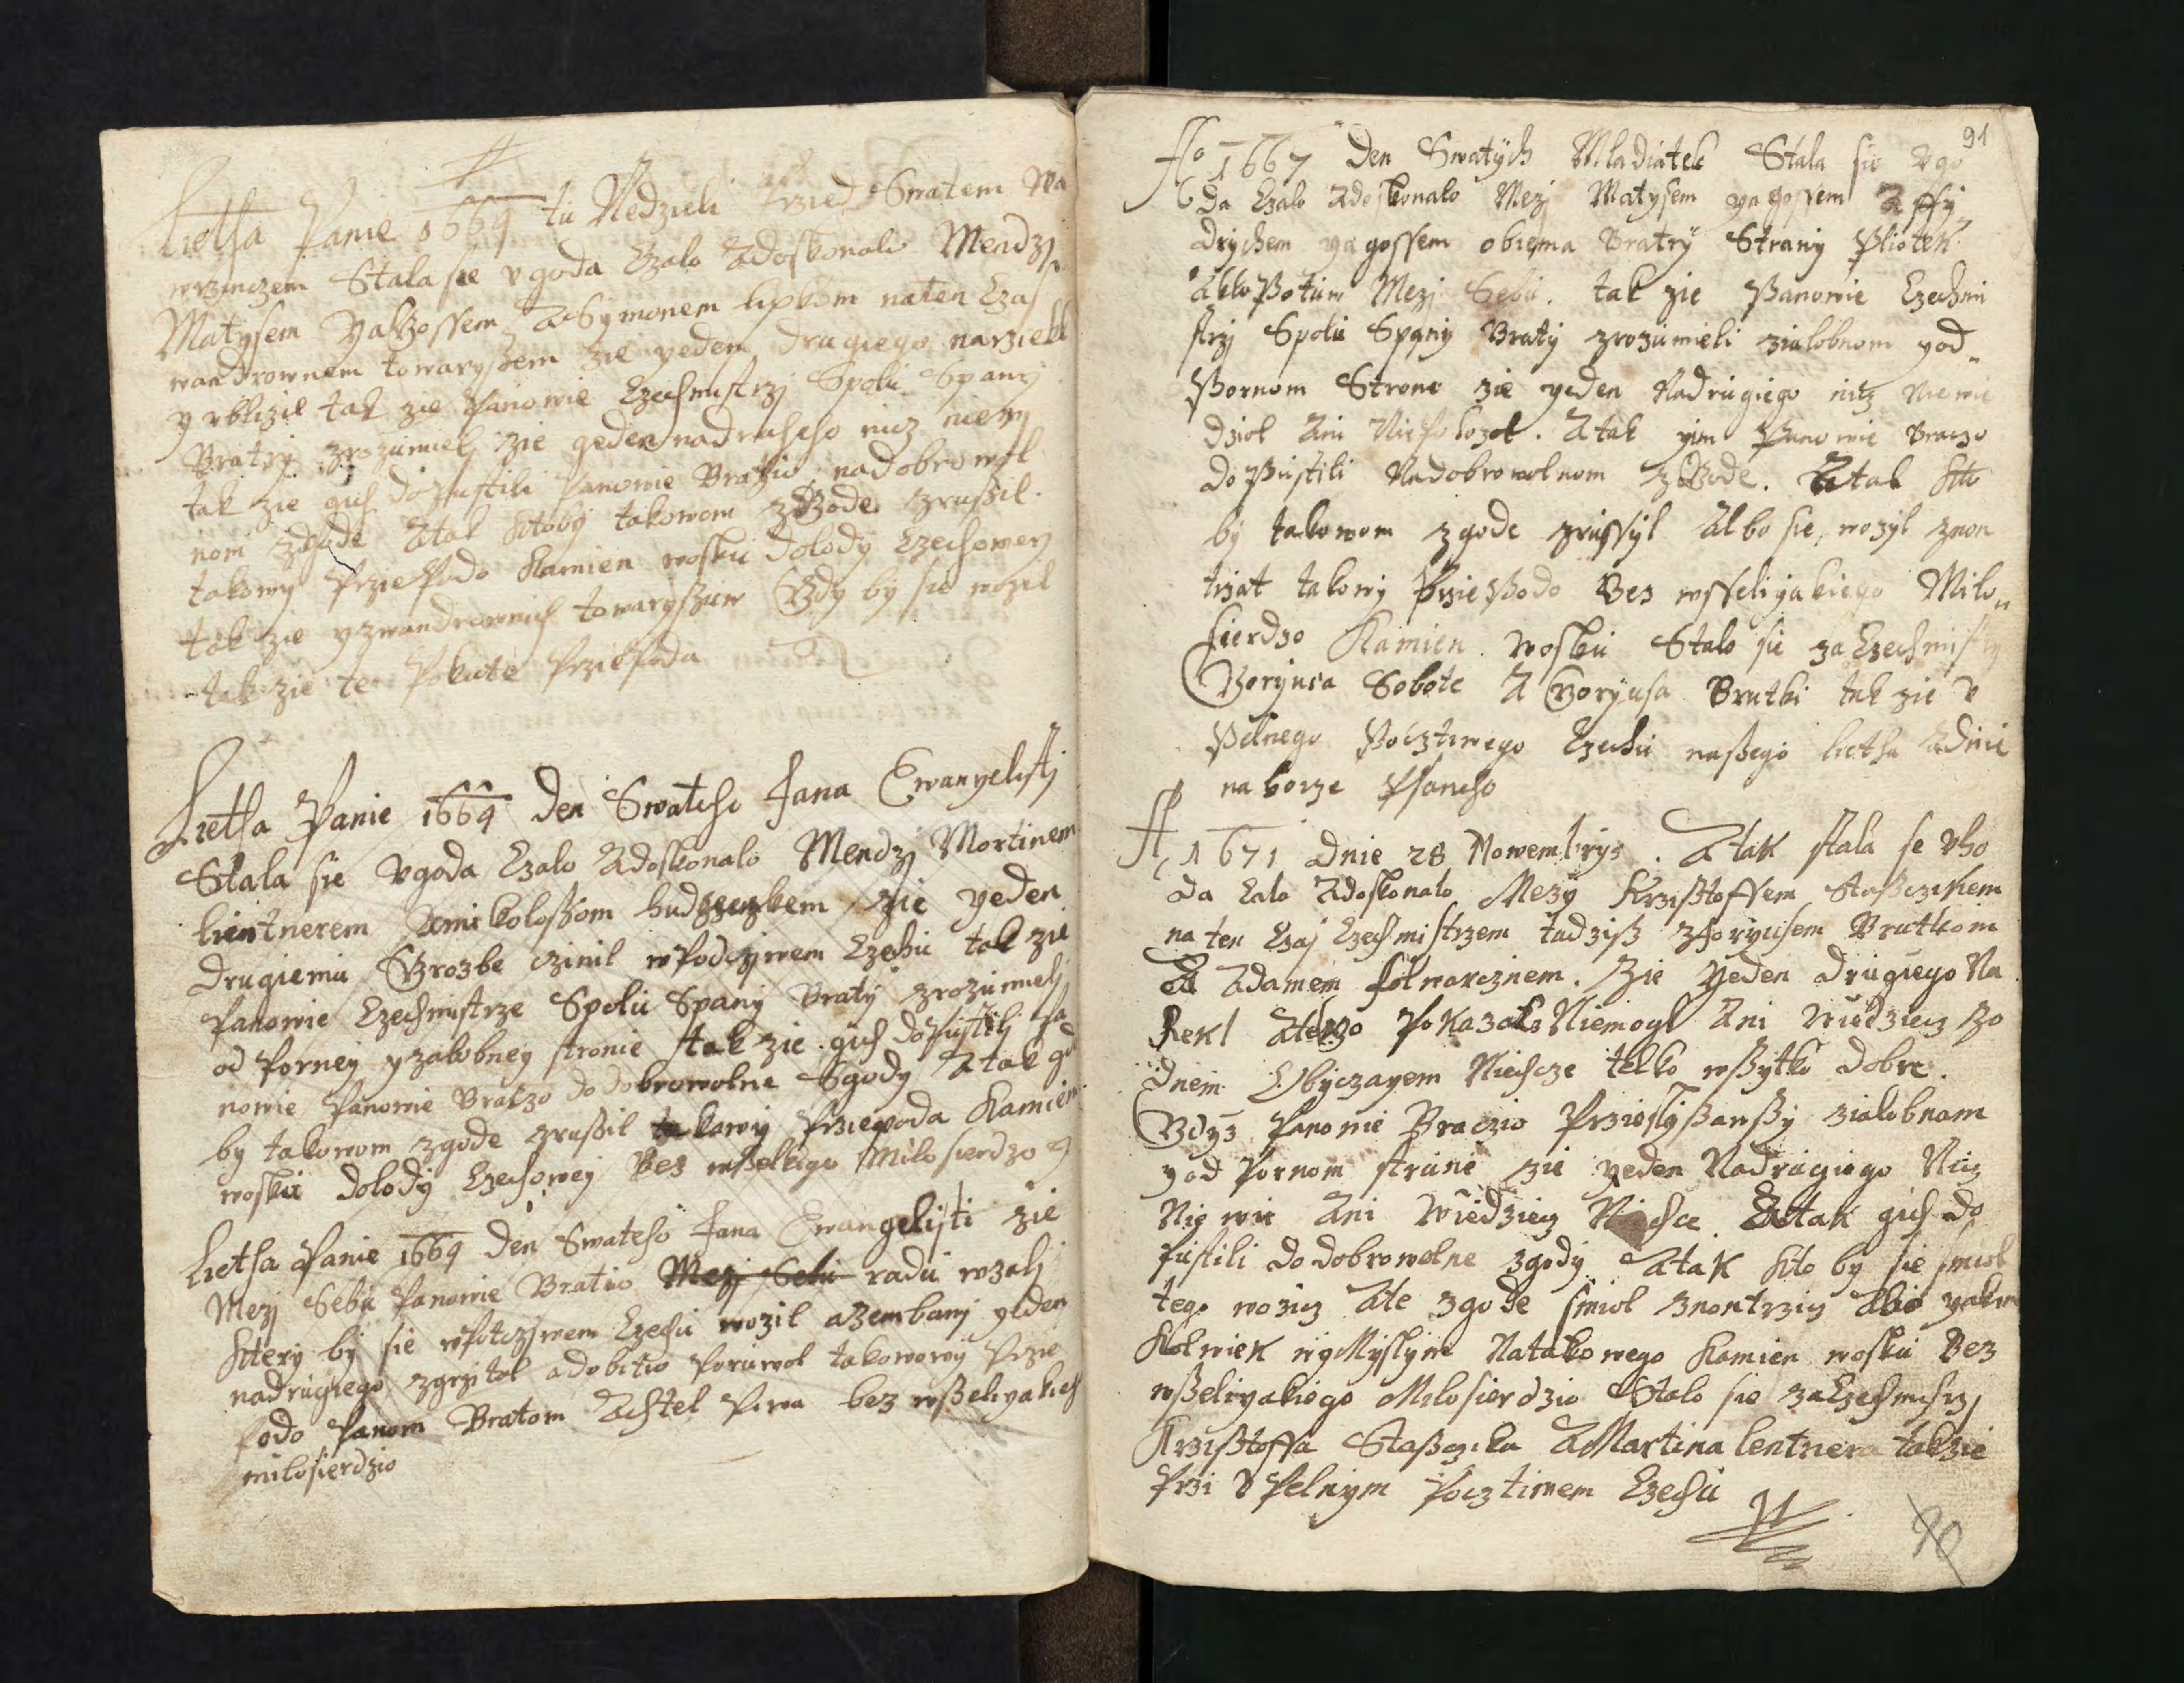 Lietha Panie 1664 tu Nedzieli przed Swatem Wa
wrzinczem Stala sie vgoda Czalo Adoskonalo Mendzy
Matysem Jakgossem ASymonem lipkom naten Czas
wandrownem towaryssem zie yeden drugiego narziekl
y vblizil tak zie Panowie Czechmistrzj Spolu Spanj
Bratrÿ zrozumielj zie geden nadruheho nicz niewj
tak zie gich dopustili Panowie Bratio nadobrowol
nom zgode Atak ktobÿ takowom zgode zrussil
takowÿ Przepodo Kamien wosku dolodÿ Czechowej
tak zie yzwandrownich towaryssuw Gdy by sie wozil
takzie te Pokute Przepoda
Lietha Panie 1664 den Swateho Jana Ewanyelistj
Stala sie vgoda Czalo Adoskonalo Mendzj Mortinem
lientnerem Amikolossom zie yeden
drugiemu Grozbe czinil wPodczjwem Czechu tak zie
Panowie Czechmistrze Spolu Spanÿ Bratÿ zrozumielj
od Porneÿ yzalobneÿ stronie tak zie gich dopustilj Pa
nowie Panowie Bratzo do dobrowolne Sgodÿ Atak gd
by takowom zgode zrussil takowÿ Przepoda Kamien
wosku dolodÿ Czechoweÿ Bez wsselkigo Milosierdzo
Lietha Panie 1664 den Swateho Jana Ewangelisti zie
Mezj Sebu Panowie Bratio Mezj Sebu radu wzalj
kterÿ bÿ sie wPotczjwem Czechu wozil aZembanj yeden
nadrugiego zgrzitol adobitio Poruwol takowowÿ Prze
podo Panom Bratom Achtel Piwa bez wsseliyakich
milosierdzio
91
Ao 1667 Den Swatÿch Mladiatek Stala sie Vgo
da Czalo Adoskonalo Mezj Matysem yagossem Assÿ
drÿchem yagossem obiema Bratrÿ Stranÿ Pliotek
Akloppotuw Mezj Sebu. tak zie Panowie Czechmi
strzj Spolu Spanÿ Bratÿ zrozumieli zialobnom yod
Pornom Strone zie yeden Nadrugiego nicz Niewie
dziol Ani Niepokozol. Atak yim Panowie Braczo
doPustili Nadobrowolnom zGode. Atak kto
bÿ takowom zgode zrussÿl Albo sie, wozÿl znon
trzat takowÿ PrziePodo Bez wsseliyakiego Milo
sierdzo Kamien wosku Stalo sie zaCzechmistrzÿ
Gorÿusa Sobote A Gorÿusa Brutki takzie v
Pelnego Pocztiwego Czechu nassego lietha Adnie
na horze Psaneho
A 1671 Dnie 28 Nowembrys. Atak stala se vho
da Calo Adoskonalo Mezÿ Krzisstoffem Stassczikem
na ten Czas Czechmistrzem tudziss zhorÿusem Brutkom
A Adamem folwarcznem. Zie Yeden Drugiego Na
Rekl Atelzo Pokazals Niemogl Ani Wiedziecz Zo
dnem Obÿczayem Niechcze telko wssÿtko dobre.
Gdÿz Panowie Braczio Przieslÿssawssÿ zialobnom
yod Pornom strunie zie yeden Nadrugiego Nicz
Nie wie Ani Wiedziecz Niechce. Atak gich do
Pustili do dobrowolne zgodÿ Atak kto bÿ sie smiol
tego wozicz Ate zgode smiol znontrzicz Albo yakim
Kolwiek wÿMÿslÿm Natakowego Kamien wosku Bez
wsseliyakiego Milosierdzio Stalo sie zaCzechmistrzj
Krzisstoffa Stasszika AMartina lentnera takzie
Przi v Pelnÿm Pocztiwem Czechu
90